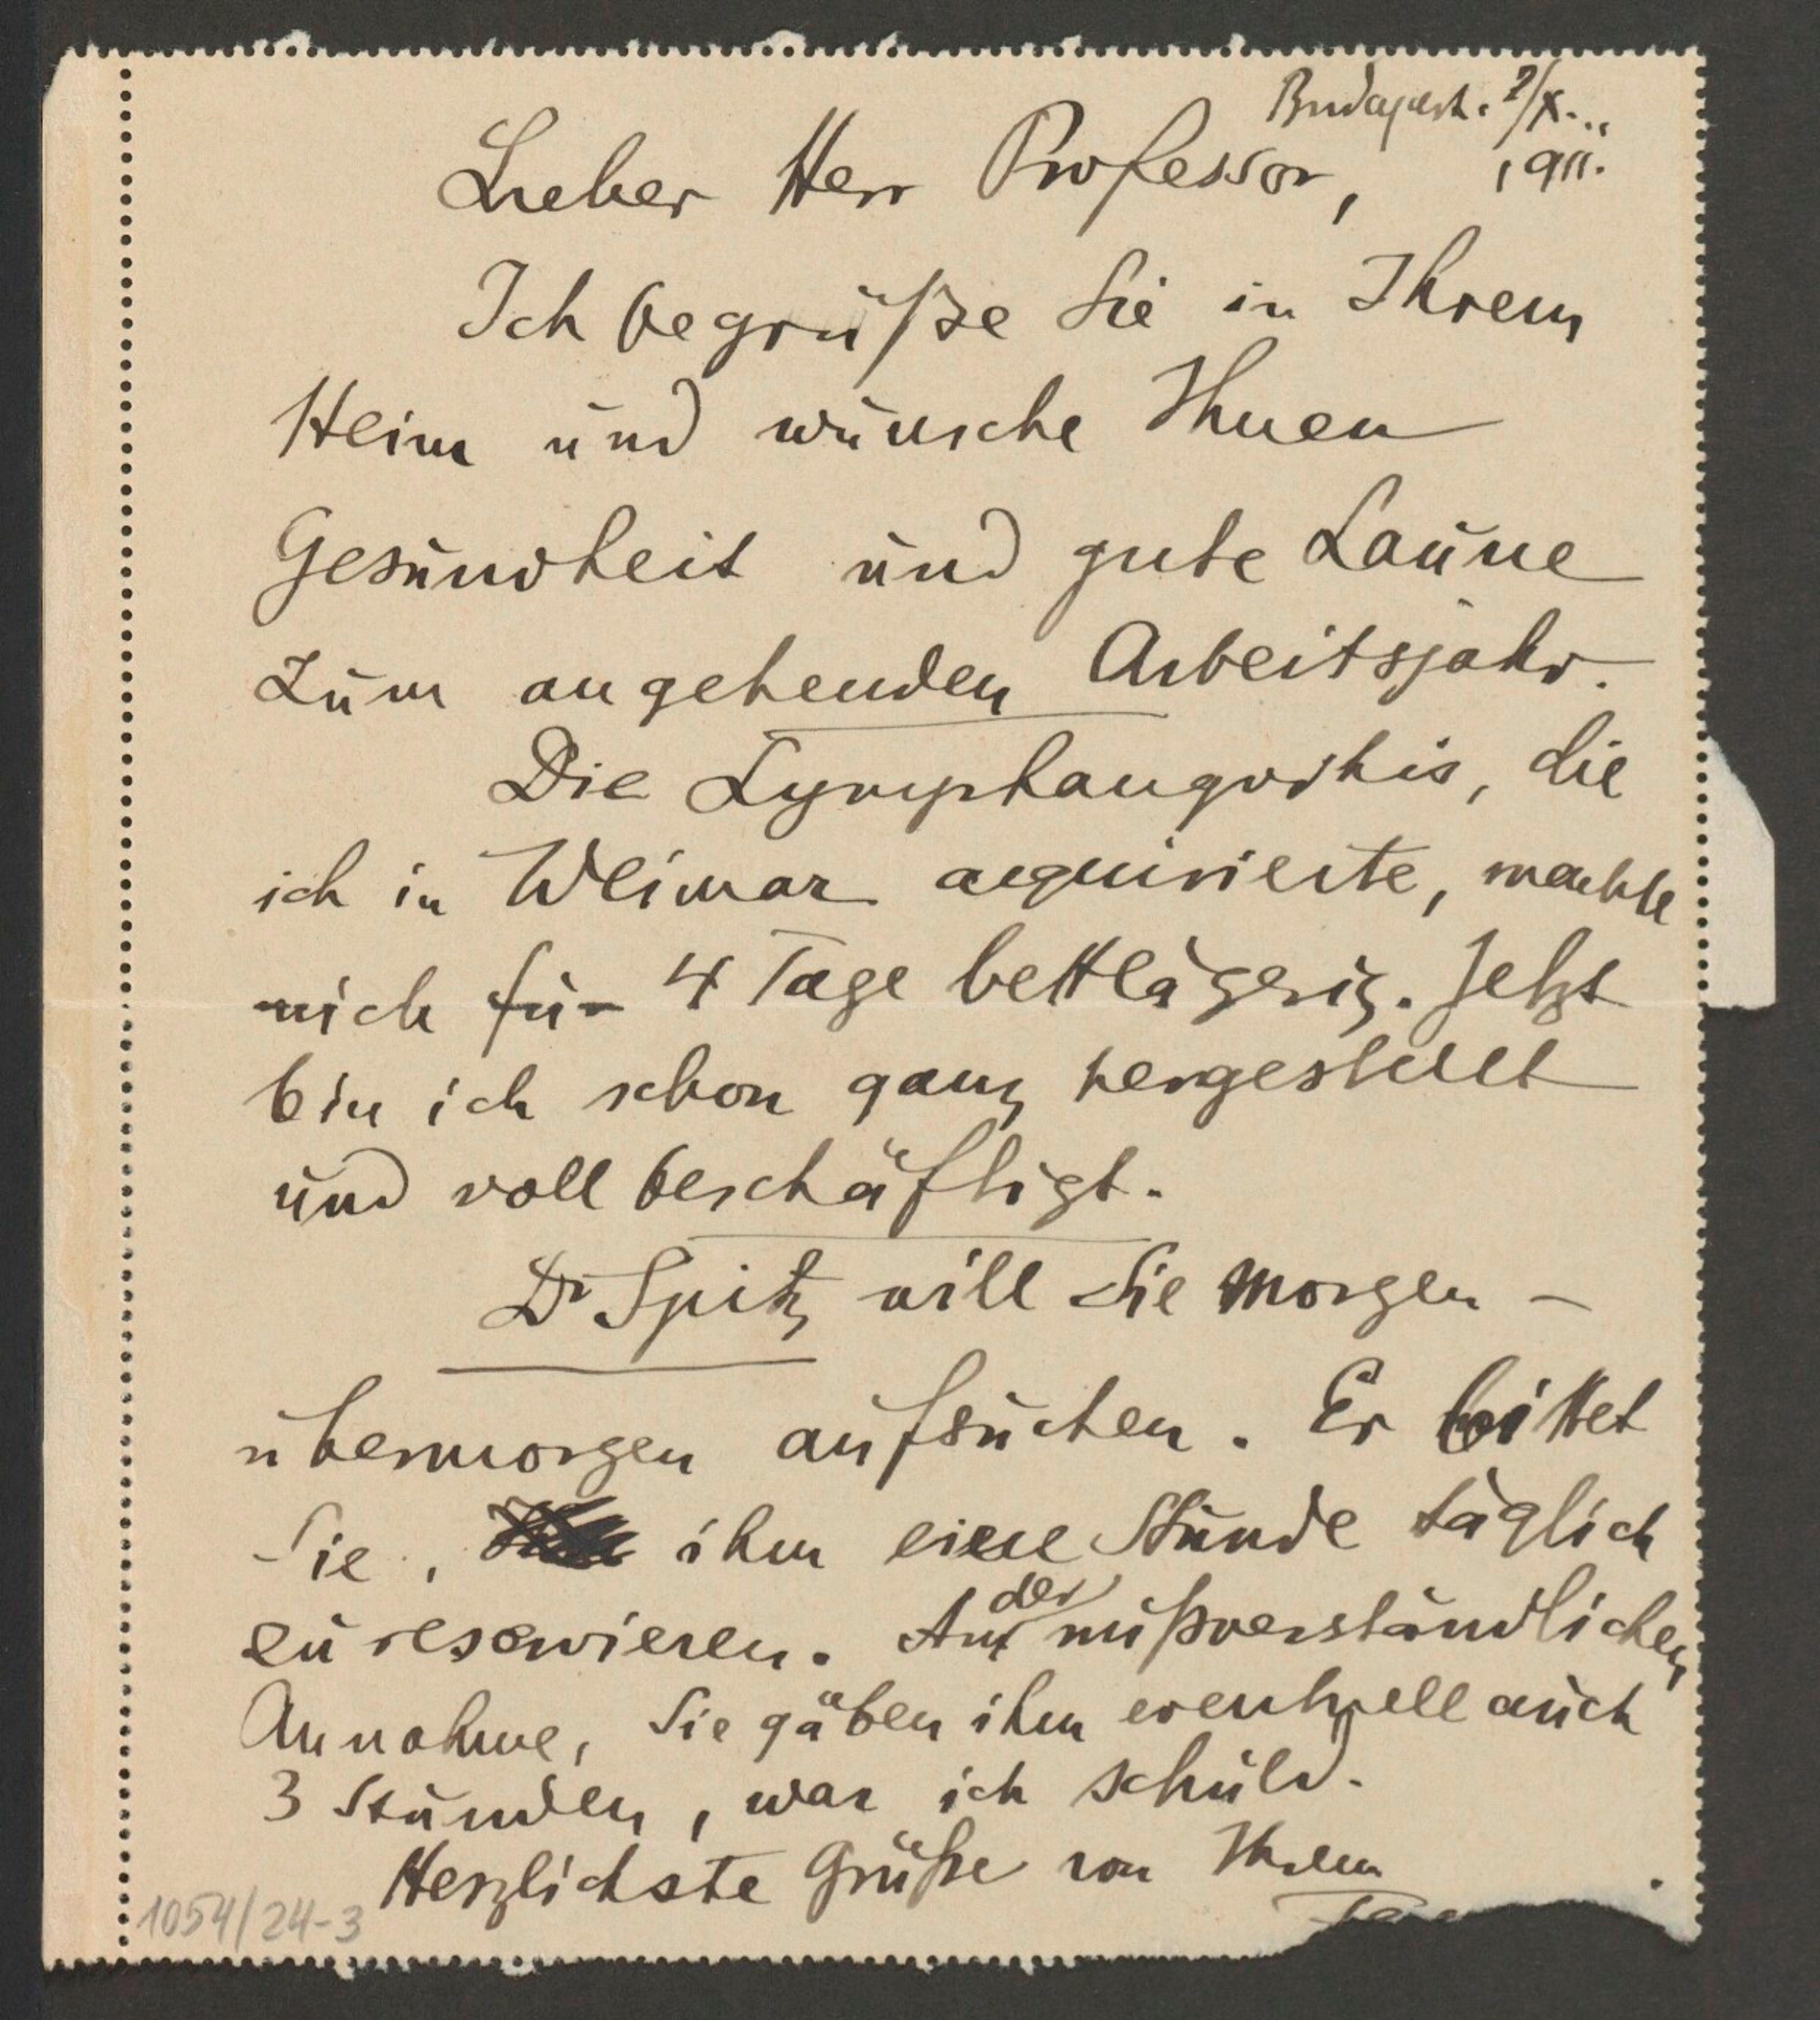 Budapest. 2/X.
1911.
Lieber Herr Professor,
Ich begrüße Sie in Ihrem
Heim und wünsche Ihnen
Gesundheit und gute Laune
zum angehenden Arbeitsjahr.
Die Lymphangoitis, die
ich in Weimar acquirierte, machte
mich für 4 Tage bettlägerig. Jetzt
bin ich schon ganz hergestellt
und voll beschäftigt.
Dr Spitz will Sie morgen –
übermorgen aufsuchen. Er bittet
Sie, ihm eine Stunde täglich
zu reservieren. An der mißverständlichen
Annahme, Sie gäben ihm eventuell auch
3 Stunden, war ich schuld.
Herzlichste Grüße von Ihrem
1054/24-3